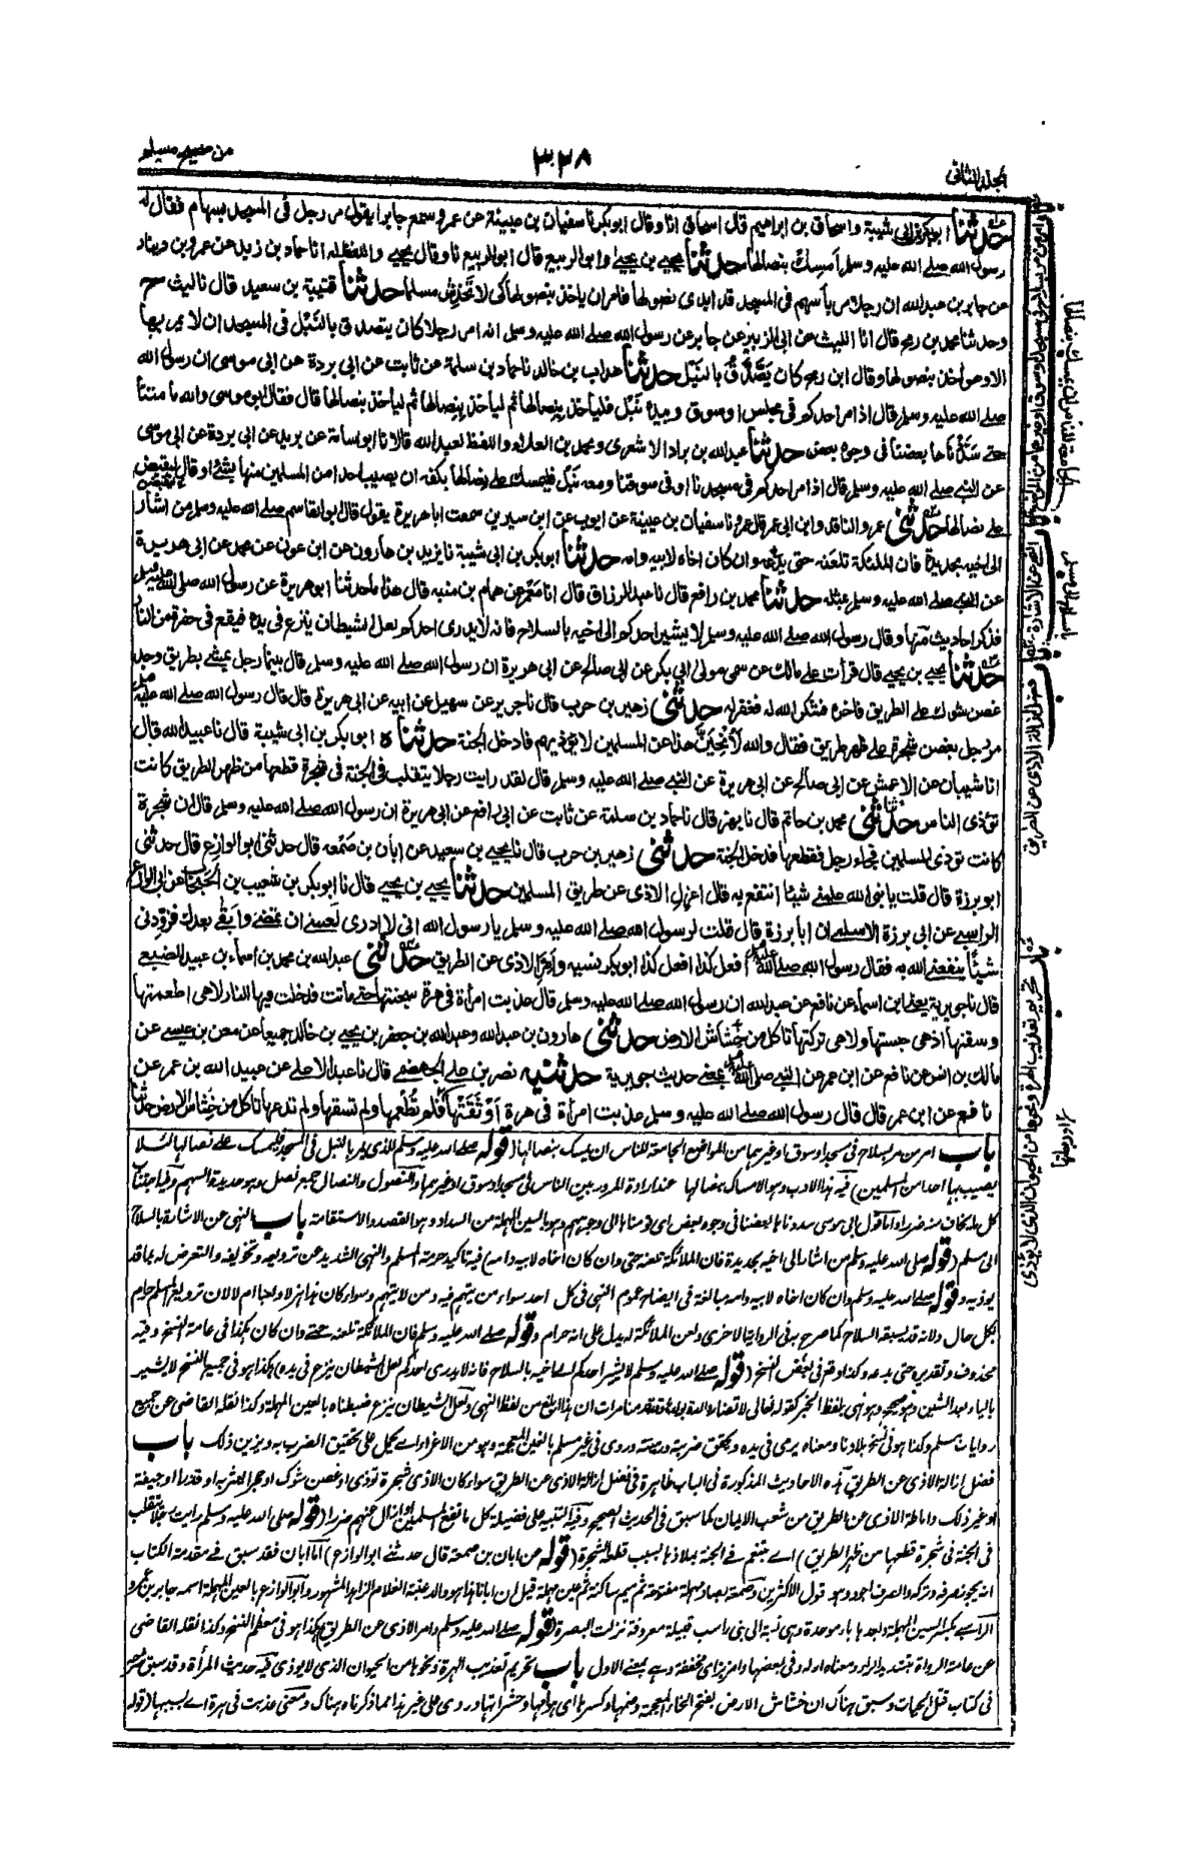 المجلد الثانى
٣٢٨
من صحيح مسلم
حدثنا ابوبكر بن ابى شيبة واسحاق بن ابراهيم قال اسحاق انا وقال ابوبكر نا سفيان بن عيينة عن عمرو سمع جابرا يقول مر رجل فى المسجد بسهام فقال له
رسول الله صلى الله عليه وسلم أمسك بنصالها حدثنا يحيى بن يحيى وابو الربيع قال ابو الربيع نا وقال يحيى واللفظ له انا حماد بن زيد عن عمرو بن دينار
عن جابر بن عبد الله ان رجلا مر بأسهم فى المسجد قد ابدى نصولها فامر ان ياخذ بنصولها كى لا تخدش مسلما حدثنا قتيبة بن سعيد قال نا ليث ح
وحدثنا محمد بن رمح قال انا الليث عن ابى الزبير عن جابر عن رسول الله صلى الله عليه وسلم انه امر رجلا كان يتصدق بالنبل فى المسجد ان لا يمر بها
الا وهو آخذ بنصولها وقال ابن رمح كان يصدق بالنبل حدثنا هداب بن خالد نا حماد بن سلمة عن ثابت عن ابى بردة عن ابى موسى ان رسول الله
صلى الله عليه وسلم قال اذا مر احدكم فى مجلس او سوق وبيده نبل فلياخذ بنصالها ثم لياخذ بنصالها ثم لياخذ بنصالها قال فقال ابو موسى والله ما متنا
حتى سددناها بعضنا فى وجوه بعض حدثنا عبد الله بن براد الاشعرى ومحمد بن العلاء واللفظ لعبد الله قالا نا ابو اسامة عن بريد عن ابى بردة عن ابى موسى
عن النبى صلى الله عليه وسلم قال اذا مر احدكم فى مسجدنا او فى سوقنا ومعه نبل فليمسك على نصالها بكفه ان يصيب احدا من المسلمين منها بشئ او قال ليقبض
على نصالها حدثنى عمرو الناقد وابن ابى عمر قال عمرو نا سفيان بن عيينة عن ايوب عن ابن سيرين سمعت ابا هريرة يقول قال ابو القاسم صلى الله عليه وسلم من اشار
الى اخيه بحديدة فان الملئكة تلعنه حتى يدعه وان كان اخاه لابيه وامه حدثنا ابوبكر بن ابى شيبة نا يزيد بن هارون عن ابن عون عن محمد عن ابى هريرة
عن النبى صلى الله عليه وسلم بمثله حدثنا محمد بن رافع قال نا عبد الرزاق قال انا معمر عن همام بن منبه قال هذا ما حدثنا ابو هريرة عن رسول الله صلى الله عليه وسلم
فذكر احاديث منها وقال رسول الله صلى الله عليه وسلم لا يشير احدكم الى اخيه بالسلاح فانه لا يدرى احدكم لعل الشيطان ينزع فى يده فيقع فى حفرة من النار
حدثنا يحيى بن يحيى قال قرأت على مالك عن سمى مولى ابى بكر عن ابى صالح عن ابى هريرة ان رسول الله صلى الله عليه وسلم قال بينما رجل يمشى بطريق وجد
غصن شوك على الطريق فاخره فشكر الله له فغفر له حدثنى زهير بن حرب قال نا جرير عن سهيل عن ابيه عن ابى هريرة قال قال رسول الله صلى الله عليه وسلم
مر رجل بغصن شجرة على ظهر طريق فقال والله لأنحين هذا عن المسلمين لا يؤذيهم فادخل الجنة حدثناه ابوبكر بن ابى شيبة قال نا عبيد الله قال
انا شيبان عن الاعمش عن ابى صالح عن ابى هريرة عن النبى صلى الله عليه وسلم قال لقد رايت رجلا يتقلب فى الجنة فى شجرة قطعها من ظهر الطريق كانت
تؤذى الناس حدثنى محمد بن حاتم قال نا بهز قال نا حماد بن سلمة عن ثابت عن ابى رافع عن ابى هريرة ان رسول الله صلى الله عليه وسلم قال ان شجرة
كانت تؤذى المسلمين فجاء رجل فقطعها فدخل الجنة حدثنى زهير بن حرب قال نا يحيى بن سعيد عن ابان بن صمعة قال حدثنى ابو الوازع قال حدثنى
ابو برزة قال قلت يا نبى الله علمنى شيئا انتفع به قال اعزل الاذى عن طريق المسلمين حدثنا يحيى بن يحيى قال نا ابوبكر بن شعيب بن الحبحاب عن ابى الوازع
الراسبى عن ابى برزة الاسلمى ان ابا برزة قال قلت لرسول الله صلى الله عليه وسلم يا رسول الله انى لا ادرى لعسى ان تمضى وابقى بعدك فزودنى
شيئا ينفعنى الله به فقال رسول الله صلى الله عليه وسلم افعل كذا افعل كذا ابوبكر نسيه وامر الاذى عن الطريق حدثنى عبد الله بن محمد بن اسماء بن عبيد الضبعى
قال نا جويرية يعنى ابن اسماء عن نافع عن عبد الله ان رسول الله صلى الله عليه وسلم قال عذبت امرأة فى هرة سجنتها حتى ماتت فدخلت فيها النار لا هى اطعمتها
وسقتها اذ هى حبستها ولا هى تركتها تاكل من خشاش الارض حدثنى هارون بن عبد الله وعبد الله بن جعفر بن يحيى بن خالد جميعا عن معن بن عيسى عن
مالك بن انس عن نافع عن ابن عمر عن النبى صلى الله عليه وسلم بمعنى حديث جويرية حدثنيه نصر بن على الجهضمى قال نا عبد الاعلى عن عبيد الله بن عمر عن
نافع عن ابن عمر قال قال رسول الله صلى الله عليه وسلم عذبت امرأة فى هرة أوثقتها فلم تطعمها ولم تسقها ولم تدعها تاكل من خشاش الارض حدثنا
باب امر من مر بسلاح فى مسجد او سوق او غيرهما من المواضع الجامعة للناس ان يمسك بنصالها (قوله صلى الله عليه وسلم للذى يمر بالنبل فى المسجد فليمسك على نصالها لئلا
يصيب بها احدا من المسلمين) فيه هذا الادب وهو الامساك بنصالها عند ارادة المرور بين الناس فى مسجد او سوق او غيرهما والنصول والنصال جمع نصل وهو حديدة السهم وفيه اجتناب
كل ما يخاف منه ضرر واما قول ابى موسى سددناها بعضنا فى وجوه بعض اى قومناها الى وجوههم وهو بالسين المهملة من السداد وهو القصد والاستقامة باب النهى عن الاشارة بالسلاح
الى مسلم (قوله صلى الله عليه وسلم من اشار الى اخيه بحديدة فان الملائكة تلعنه حتى وان كان اخاه لابيه وامه) فيه تاكيد حرمة المسلم والنهى الشديد عن ترويعه وتخويفه والتعرض له بما قد
يوذيه وقوله صلى الله عليه وسلم وان كان اخاه لابيه وامه مبالغة فى ايضاح عموم النهى فى كل احد سواء من يتهم فيه ومن لا يتهم وسواء كان هذا هزلا ولعبا ام لا لان ترويع المسلم حرام
بكل حال ولانه قد يسبقه السلاح كما صرح به فى الرواية الاخرى ولعن الملائكة له يدل على انه حرام وقوله صلى الله عليه وسلم فان الملائكة تلعنه حتى وان كان هكذا فى عامة النسخ وفيه
محذوف وتقديره حتى يدعه وكذا وقع فى بعض النسخ (قوله صلى الله عليه وسلم لا يشير احدكم الى اخيه بالسلاح فانه لا يدرى احدكم لعل الشيطان ينزع فى يده) هكذا هو فى جميع النسخ لا يشير
بالياء بعد الشين وهو صحيح وهو نهى بلفظ الخبر كقوله تعالى لا تضار والدة بولدها وقد قدمنا مرات ان هذا ابلغ من لفظ النهى ولعل الشيطان ينزع ضبطناه بالعين المهملة وكذا نقله القاضى عن جميع
روايات مسلم وكذا هو فى نسخ بلادنا ومعناه يرمى فى يده ويحقق ضربته ورميته وروى فى غير مسلم بالغين المعجمة وهو من الاغراء اى يحمل على تحقيق الضرب به ويزين ذلك باب
فضل ازالة الاذى عن الطريق هذه الاحاديث المذكورة فى الباب ظاهرة فى فضل ازالة الاذى عن الطريق سواء كان الاذى شجرة توذى او غصن شوك او حجرا يعثر به او قذرا او جيفة
او غير ذلك واماطة الاذى عن الطريق من شعب الايمان كما سبق فى الحديث الصحيح وفيه التنبيه على فضيلة كل ما نفع المسلمين او ازال عنهم ضررا (قوله صلى الله عليه وسلم رايت رجلا يتقلب
فى الجنة فى شجرة قطعها من ظهر الطريق) اى يتنعم فى الجنة بملاذها بسبب قطعه الشجرة (قوله عن ابان بن صمعة قال حدثنى ابو الوازع) اما ابان فقد سبق فى مقدمة الكتاب
انه يجوز صرفه وتركه والصرف اجود وهو قول الاكثرين وصمعة بصاد مهملة مفتوحة ثم ميم ساكنة ثم عين مهملة قيل ان ابانا هذا هو والد عتبة الغلام الزاهد المشهور وابو الوازع بالعين المهملة اسمه جابر بن عمرو
الراسبى بكسر السين المهملة وبعدها باء موحدة وهى نسبة الى بنى راسب قبيلة معروفة نزلت البصرة (قوله صلى الله عليه وسلم وامر الاذى عن الطريق) هكذا هو فى معظم النسخ وكذا نقله القاضى
عن عامة الرواة بتشديد الراء ومعناه ازله وفى بعضها وامز بزاى مخففة وهى بمعنى الاول باب تحريم تعذيب الهرة ونحوها من الحيوان الذى لا يوذى فيه حديث المرأة وقد سبق شرحه
فى كتاب قتل الحيات وسبق هناك ان خشاش الارض بفتح الخاء المعجمة وضمها وكسرها اى هوامها وحشراتها وروى على غير هذا مما ذكرناه هناك ومعنى عذبت فى هرة اى بسببها (قوله
باب النهى عن الاشارة بالسلاح الى مسلم
باب فضل ازالة الاذى عن الطريق
باب تحريم تعذيب الهرة ونحوها من الحيوان الذى لا يؤذى